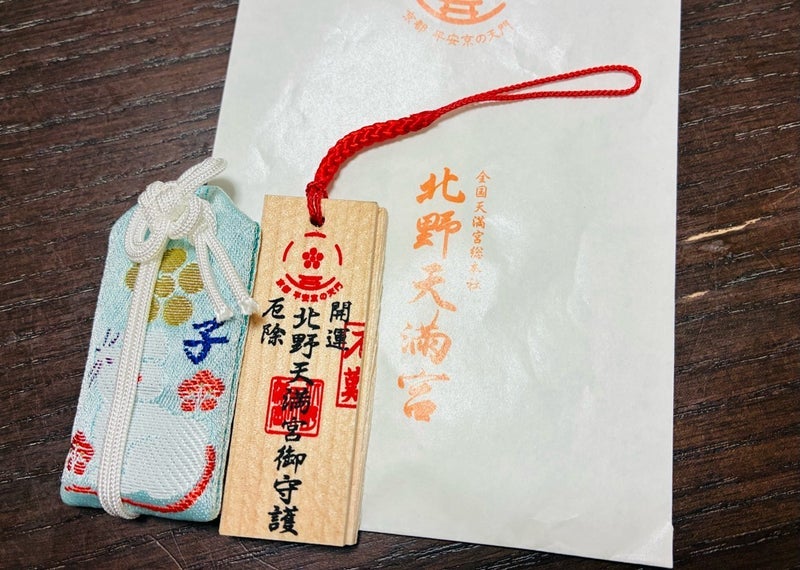 京都 平安京の天門
全国天満宮総本社
北野天満宮
子
京都 平安京の天門
開運
厄除
北野天満宮御守護